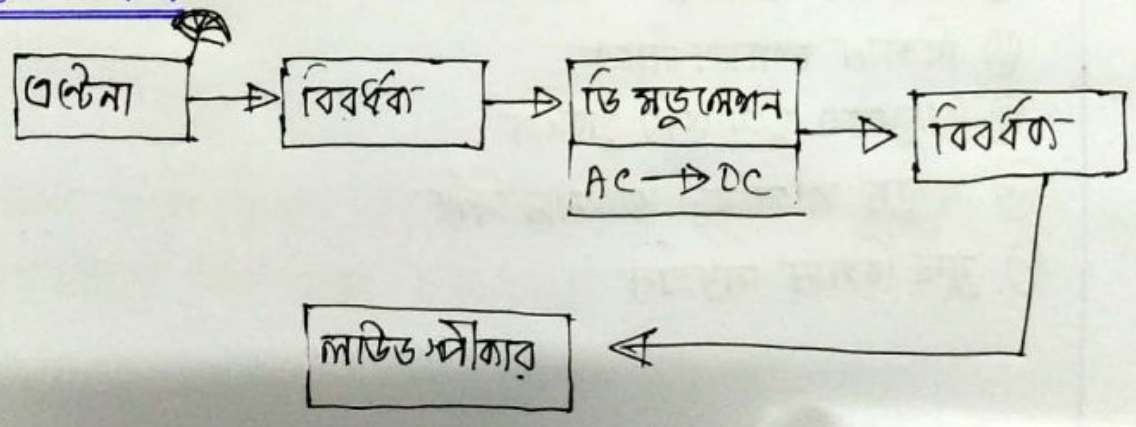 এন্টেনা
বিবর্ধক
ডি মডুলেশন
AC → DC
বিবর্ধক
লাউড স্পীকার